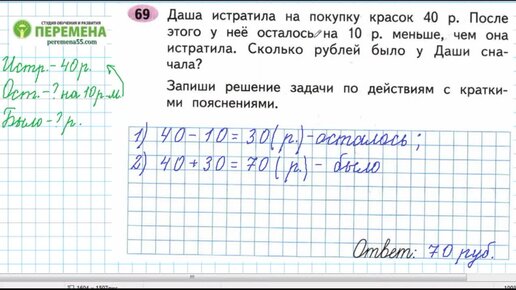 СТУДИЯ ОБУЧЕНИЯ И РАЗВИТИЯ
ПЕРЕМЕНА
peremena55.com
Истр.-40р.
Ост.-? на 10р.м
Было-? р.
69 Даша истратила на покупку красок 40 р. После
этого у неё осталось на 10 р. меньше, чем она
истратила. Сколько рублей было у Даши сна-
чала?
Запиши решение задачи по действиям с кратки-
ми пояснениями.
1) 40-10=30(р.)-осталось;
2) 40+30=70(р.)- было
Ответ: 70 руб.